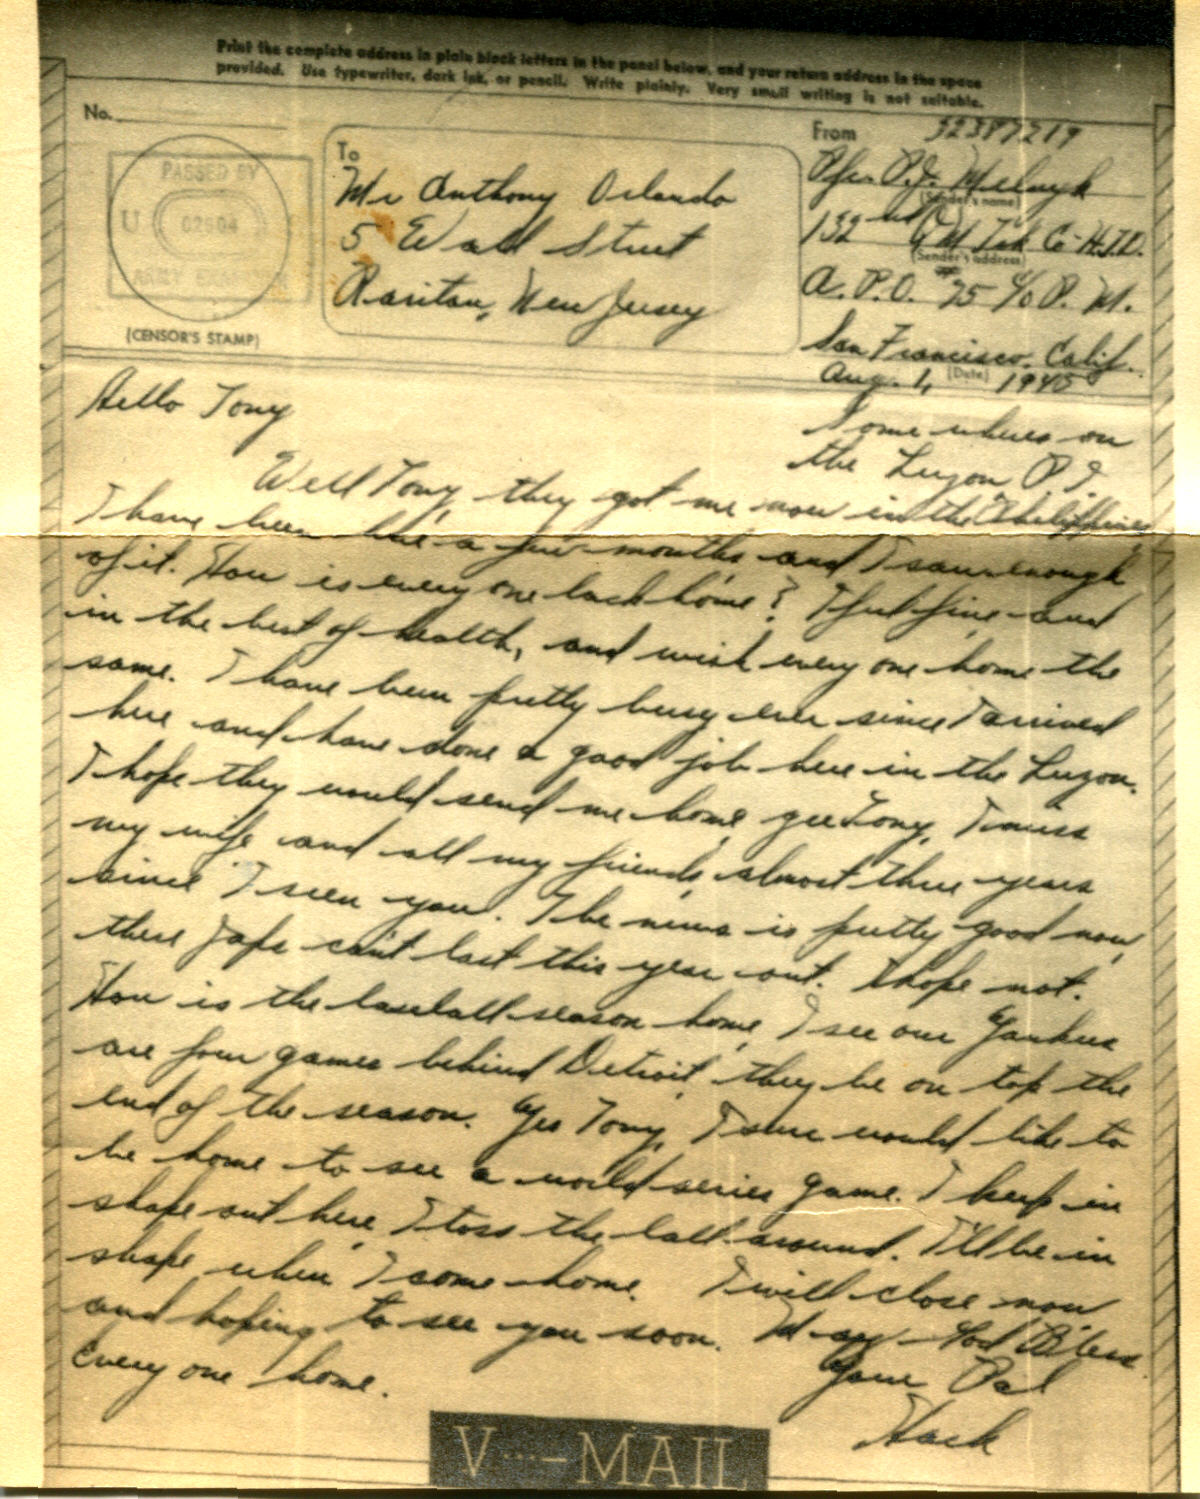 Print the complete address in plain block letters in the panel below, and your return address in the space
provided. Use typewriter, dark ink, or pencil. Write plainly. Very small writing is not suitable.
No.
PASSED BY
U
02604
ARMY
(CENSOR'S STAMP)
To
Mr Anthony Orlando
5 Wall Street
Raritan, New Jersey
From
32387219
Pfc. P.J. Melnyk
(Sender's name)
132nd QM Co
(Sender's address)
A. P. O. 75 c/o P. M.
San Francisco, Calif.
(Date)
Aug. 1, 1945
Some wheres on
the Luzon P I
Hello Tony
Well Tony, they got me now in the Philippines
I have been here a few months and I saw enough
of it. How is every one back home? I feel fine and
in the best of health, and wish every one home the
same. I have been pretty busy ever since I arrived
here and have done a good job here in the Luzon.
I hope they would send me home, gee Tony, I miss
my wife and all my friends, almost three years
since I seen you. The news is pretty good now,
these Japs can't last this year out. I hope not.
How is the baseball season home, I see our Yankees
are four games behind Detroit, they be on top the
end of the season. Yes Tony, I sure would like to
be home to see a world series game. I keep in
shape out here, I toss the ball around. I'll be in
shape when I come home. I will close now
and hoping to see you soon. May God Bless
every one home.
Your Pal
Hack
V···—MAIL